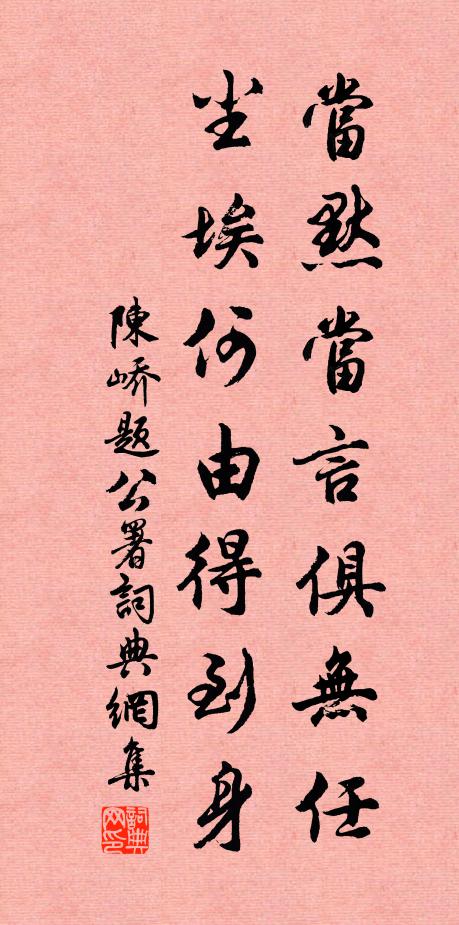 當默當言俱無任
尘埃何由得到身
陳嶠題公署詞典網集
詞典网印